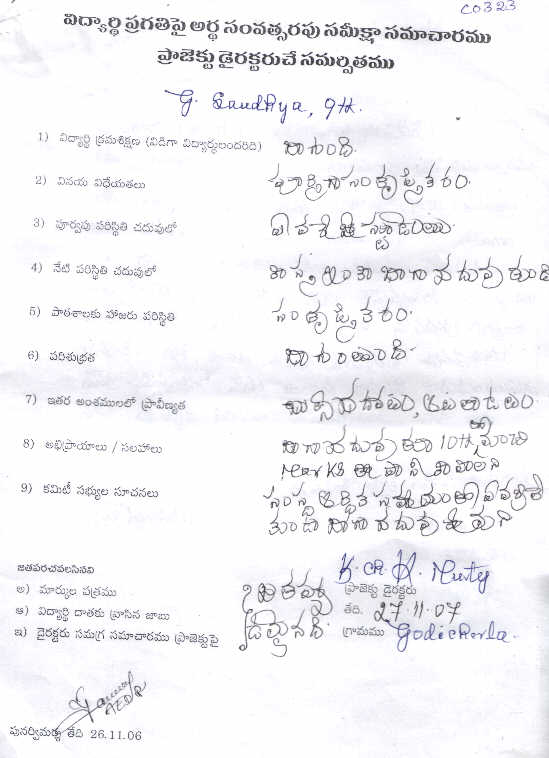 C0323
విద్యార్థి ప్రగతిపై అర్థ సంవత్సరపు సమీక్షా సమాచారము
ప్రాజెక్టు డైరక్టరుచే సమర్పితము
G. Sandhya, 9th.
1) విద్యార్థి క్రమశిక్షణ (విడిగా విద్యార్థులందరిది) బాగుంది.
2) వినయ విధేయతలు పూర్తిగా సంతృప్తికరం.
3) పూర్వపు పరిస్థితి చదువులో
4) నేటి పరిస్థితి చదువులో బాగా చదువుతుంది
5) పాఠశాలకు హాజరు పరిస్థితి సంతృప్తికరం.
6) పరిశుభ్రత బాగుంటుంది.
7) ఇతర అంశములలో ప్రావీణ్యత బుక్స్ చదవటం, ఆటలాడటం.
8) అభిప్రాయాలు / సలహాలు బాగా చదువుతూ 10th మంచి
Marks తో పాసు కావాలని
9) కమిటీ సభ్యుల సూచనలు సంస్థ ఆర్థిక సహాయంతో
బాగా చదువుకొమ్మని
జతపరచవలసినవి
అ) మార్కుల పత్రము
ఆ) విద్యార్థి దాతకు వ్రాసిన జాబు
ఇ) డైరక్టరు సమగ్ర సమాచారము ప్రాజెక్టుపై
K. Ch. K. Murty
ప్రాజెక్టు డైరక్టరు
తేది. 27.11.07
గ్రామము Godicherla.
పునర్విమర్శ తేది 26.11.06